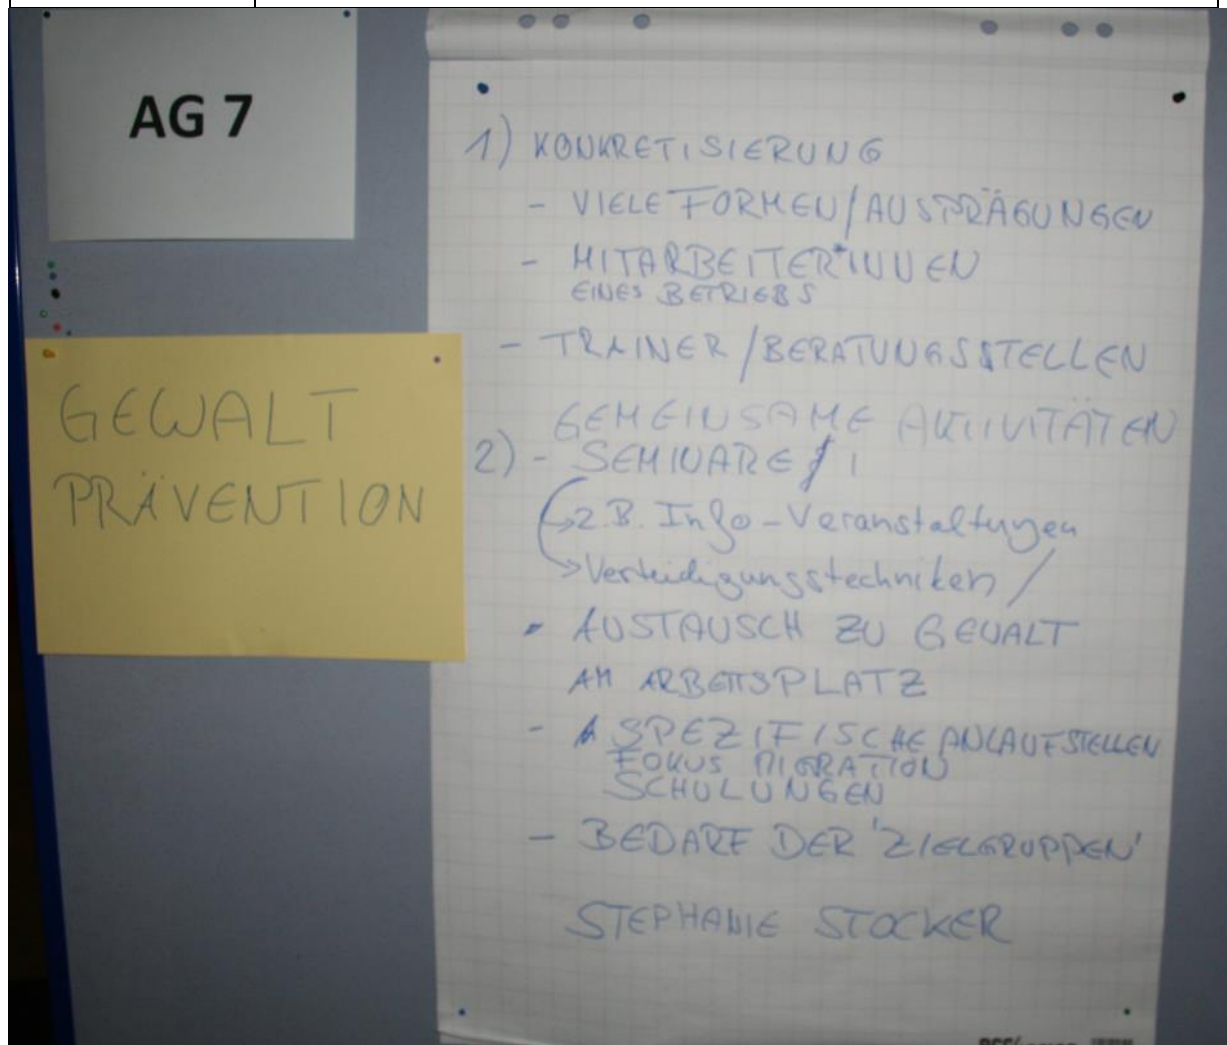 AG 7
GEWALT
PRÄVENTION
1) KONKRETISIERUNG
- VIELE FORMEN/AUSPRÄGUNGEN
- MITARBEITER*INNEN
EINES BETRIEBS
- TRAINER/BERATUNGSSTELLEN
GEMEINSAME AKTIVITÄTEN
2) - SEMINARE
z.B. Info-Veranstaltungen
Verteidigungstechniken /
- AUSTAUSCH ZU GEWALT
AM ARBEITSPLATZ
- SPEZIFISCHE ANLAUFSTELLEN
FOKUS MIGRATION
SCHULUNGEN
- BEDARF DER 'ZIELGRUPPEN'
STEPHANIE STOCKER